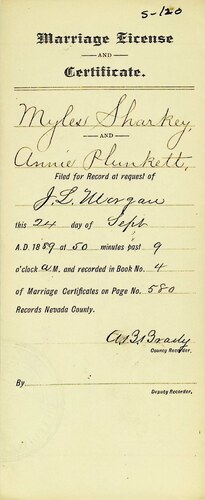 5-120
Marriage License
AND
Certificate.
Myles Sharkey,
AND
Annie Plunkett,
Filed for Record at request of
J. L. Morgan
this 24 day of Sept
A.D. 1889 at 50 minutes past 9
o'clock A M. and recorded in Book No. 4
of Marriage Certificates on Page No. 580
Records Nevada County.
Brady
County Recorder.
By
Deputy Recorder.